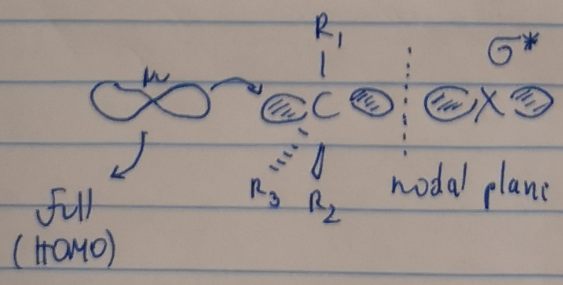 R₁
σ*
Nu
C
X
R₃
R₂
nodal plane
full
(HOMO)